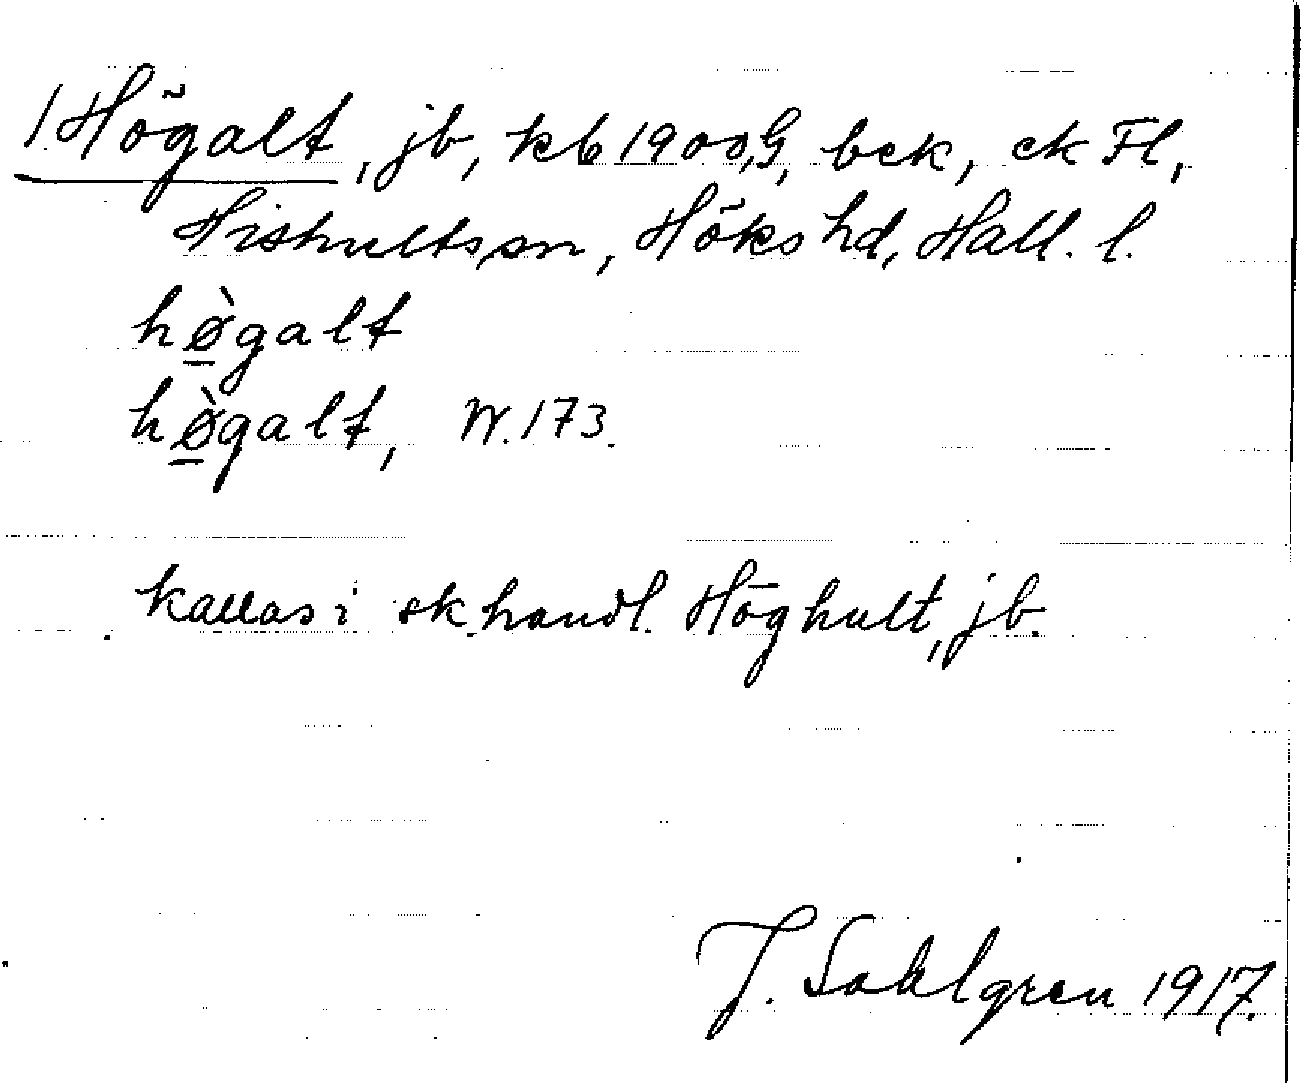 1. Högalt, jb, kb 1900, G, bck, ck Fl,
Hishults sn, Höks hd, Hall. l.
hø̀galt
hø̀galt, W. 173.
kallas i sk. handl. Höghult, jb.
J. Sahlgren 1917.